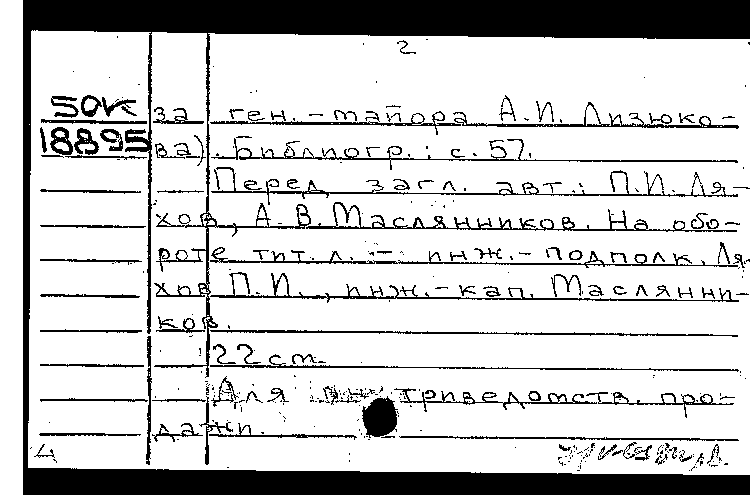 2
50К за ген.-майора А.И. Лизюко-
18895 ва). Библиогр.: с. 57.
Перед загл. авт.: П.И. Ля-
хов, А.В. Маслянников. На обо-
роте тит. л. - инж.-подполк. Ля-
хов П.И., инж.-кап. Маслянни-
ков.
22 см.
Для внутриведомств. про-
дажи.